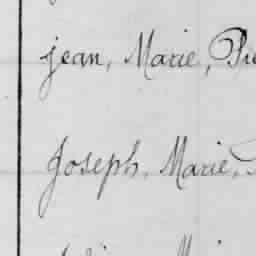 jean, Marie, Pie
Joseph, Marie,